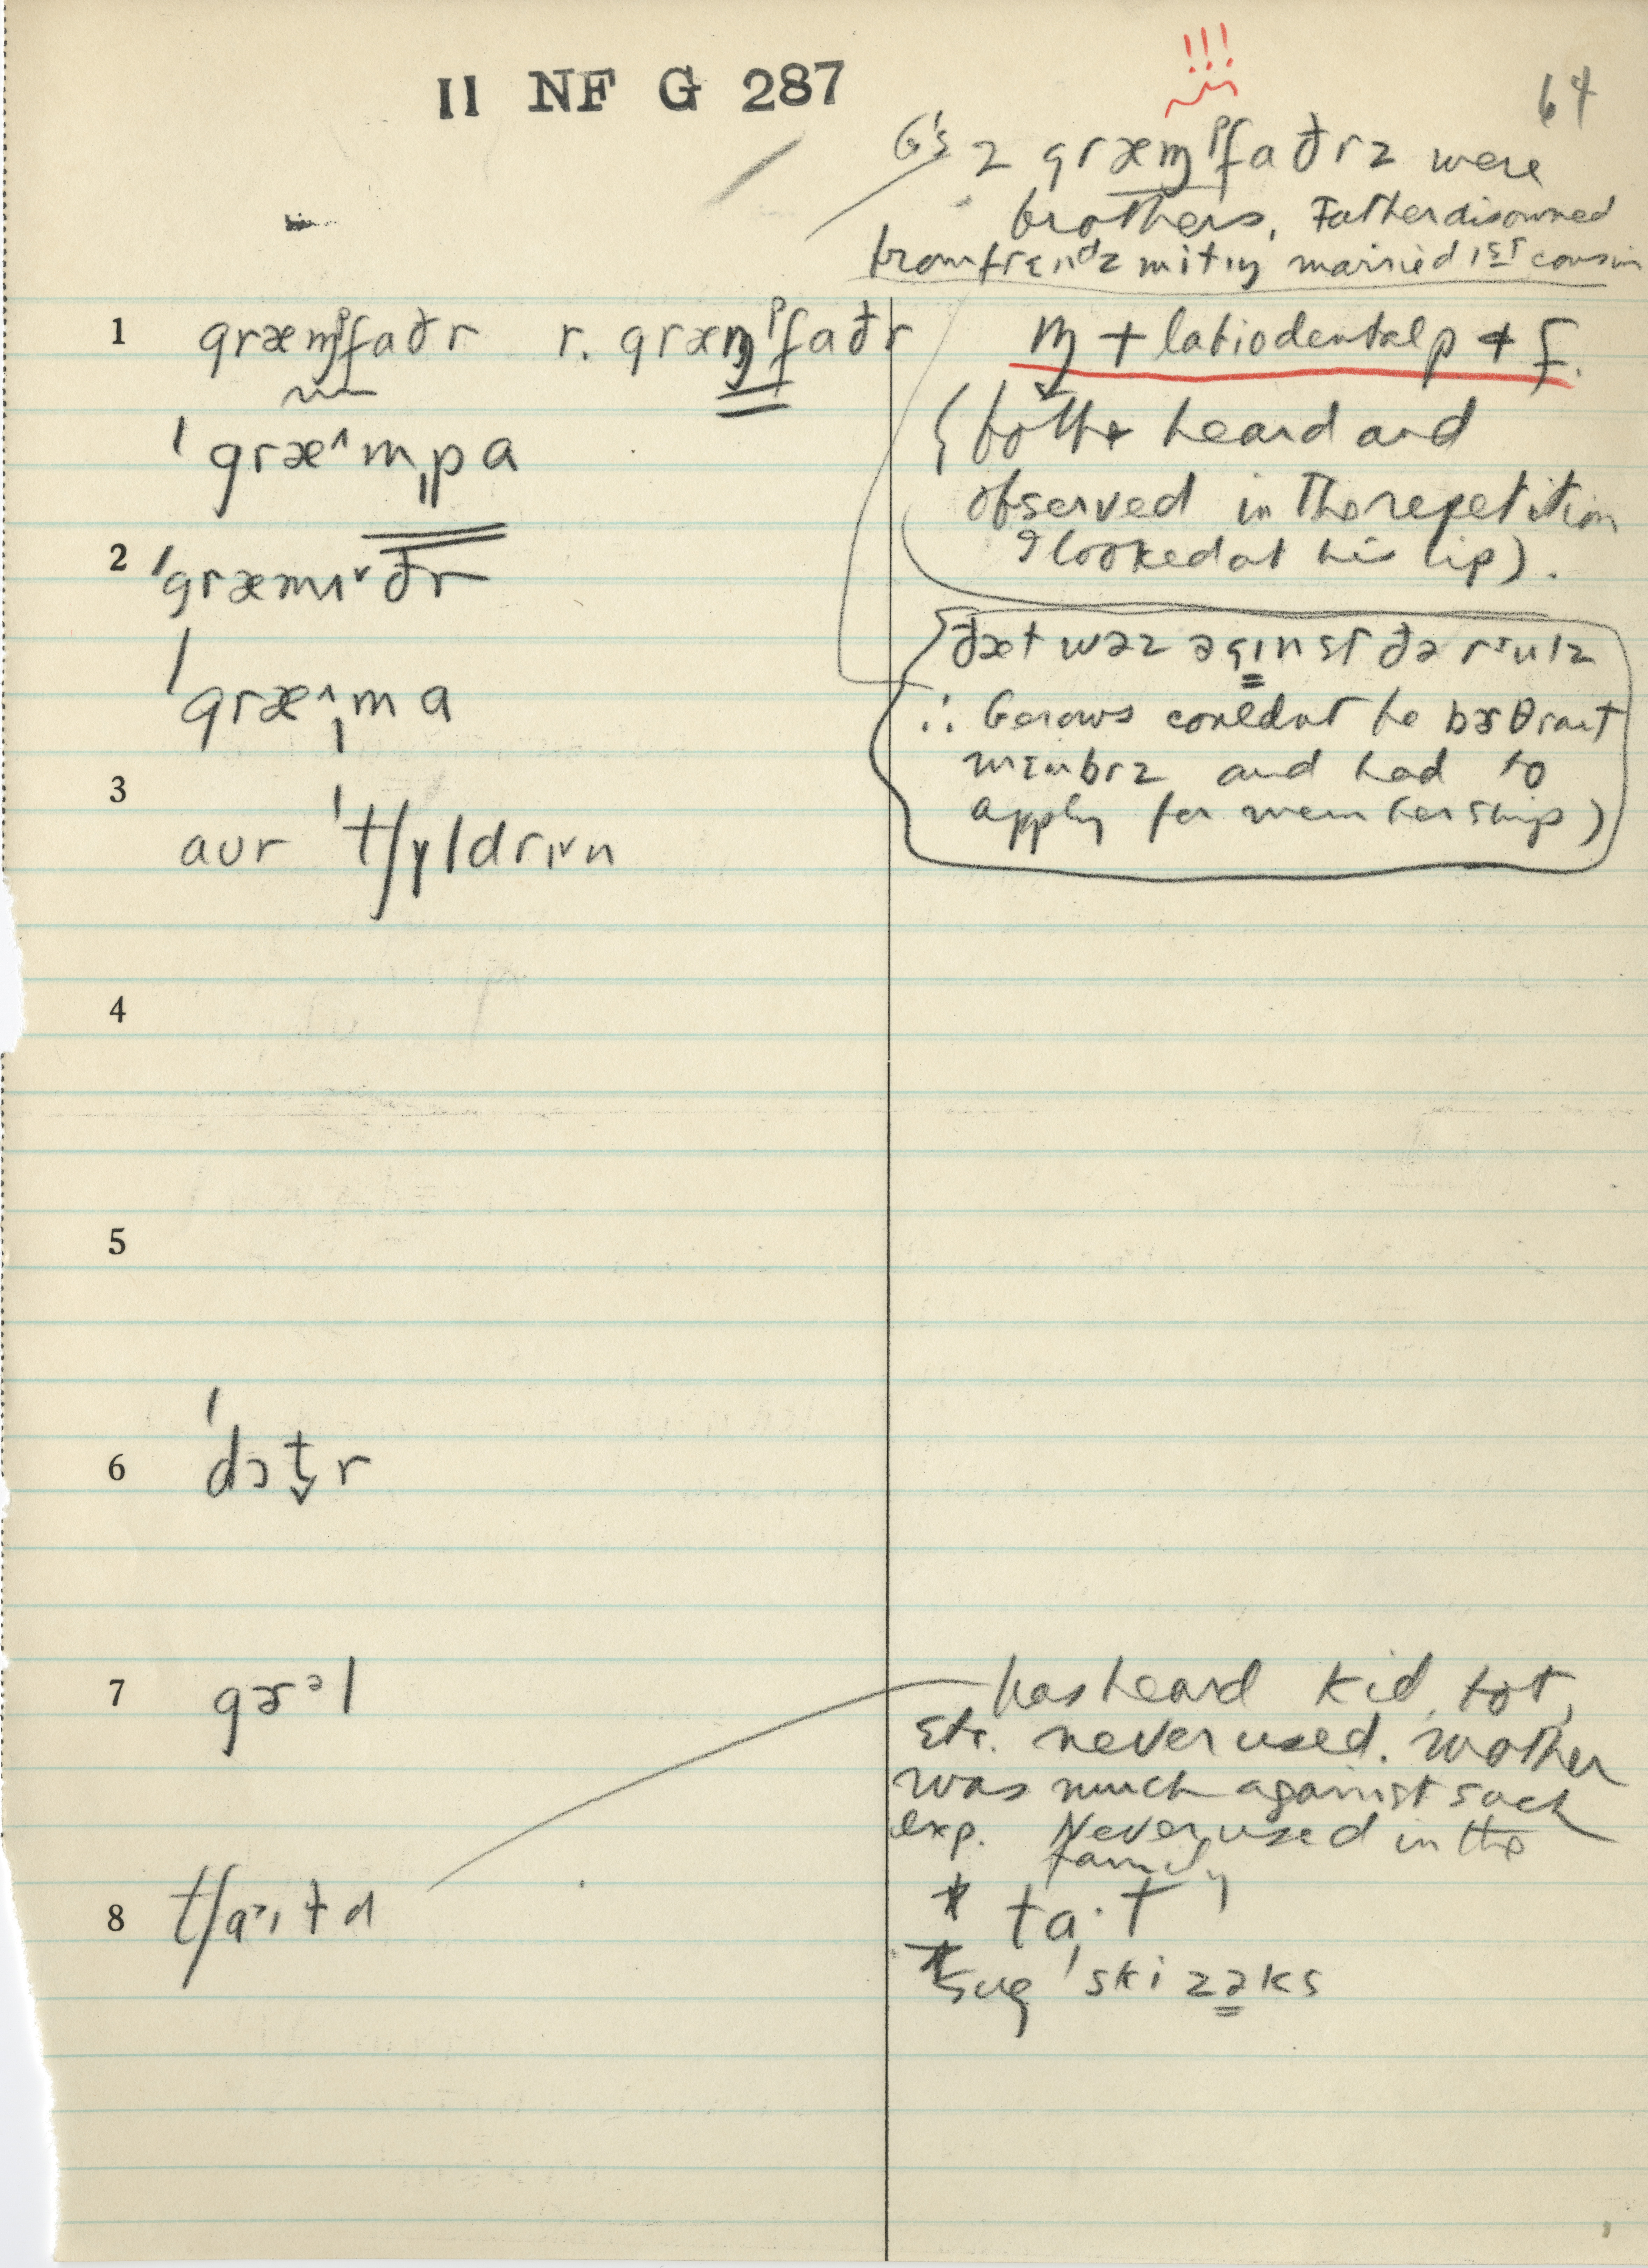 II NF G 287
64
!!!
G's 2 græɱᵖfaðrz were
brothers. Father disowned
from frɛnᵈz mitɪŋ married 1ST cousin
1 græɱᵖfaðr r. græɱᵖfaðr
ɱ + labiodental p + f.
ˈgræ^mpa
(both heard and
observed in the repetition
I looked at his lip).
2 ˈgræmɪ˅ðr
ˈgræ^ma
ðæt wəz əgɪnst ðə rᴵulz
∴ Gerows couldnt be bɜθraɪt
mɛmbrz and had to
apply for membership)
3 aʊr ˈtʃɪldrɪ˅n
4
5
6 ˈdɔt̬r
7 gɜᵊl
has heard kid, tot,
etc. never used. Mother
was much against such
exp. Never used in the
family
8 tʃa˃ɪtd
* ta·t
* sug ˈskizəks